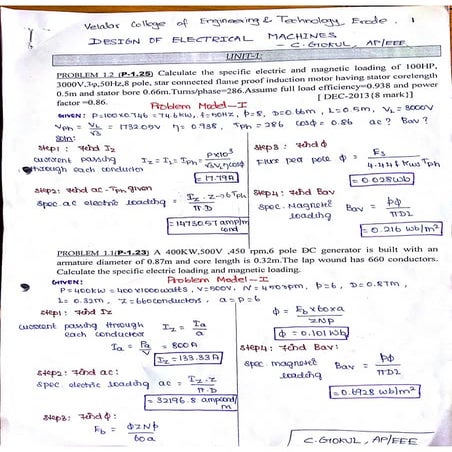 Velalar College of Engineering & Technology, Erode. 1
DESIGN OF ELECTRICAL MACHINES
- C. GOKUL, AP/EEE
UNIT-1
PROBLEM 1.2 (P-1.25) Calculate the specific electric and magnetic loading of 100HP,
3000V,3φ,50Hz,8 pole, star connected flame proof induction motor having stator corelength
0.5m and stator bore 0.66m.Turns/phase=286.Assume full load efficiency=0.938 and power
factor =0.86. [ DEC-2013 [8 mark]]
Problem Model-I
GIVEN: P=100x0.746 =74.6KW, f=50Hz, p=8, D=0.66m, L=0.5m, VL=3000V
Vph = VL/√3 = 1732.05V η = 0.938, Tph = 286 cosφ = 0.86 ac ? Bav ?
step1 : Find Iz
current passing through each conductor Iz = I1 = Iph = P×10³/
= 17.79A
step2: find ac - Tph given
spec. ac electric loading = Iz . Z→6Tph / πD
= 14730.57 amp/m
cond
step3 : Find φ
Flux per pole φ = Es / 4.44 f Kws Tph
= 0.028wb
step4 : Find Bav
spec. Magnetic loading Bav = pφ / πDL
= 0.216 wb/m²
PROBLEM 1.1(P-1.23) A 400KW,500V ,450 rpm,6 pole DC generator is built with an
armature diameter of 0.87m and core length is 0.32m.The lap wound has 660 conductors.
Calculate the specific electric loading and magnetic loading.
Problem Model-I
GIVEN:
P=400KW = 400x1000watts, V=500V, N=450rpm, p=6, D=0.87m,
L= 0.32m, Z=660conductors, a=p=6
step1 : Find Iz
current passing through each conductor Iz = Ia / a
Ia = Pa / V = 800A
Iz = 133.33A
step2: find ac:
spec electric loading ac = Iz . Z / π.D
= 32196.8 ampcond/m
step3: Find φ:
Eb = φZNp / 60a
φ = Eb x60xa / ZNp
φ = 0.101Wb
step4: Find Bav:
spec magnetic loading Bav = pφ / πDL
= 0.6928 wb/m²
C. GOKUL, AP/EEE